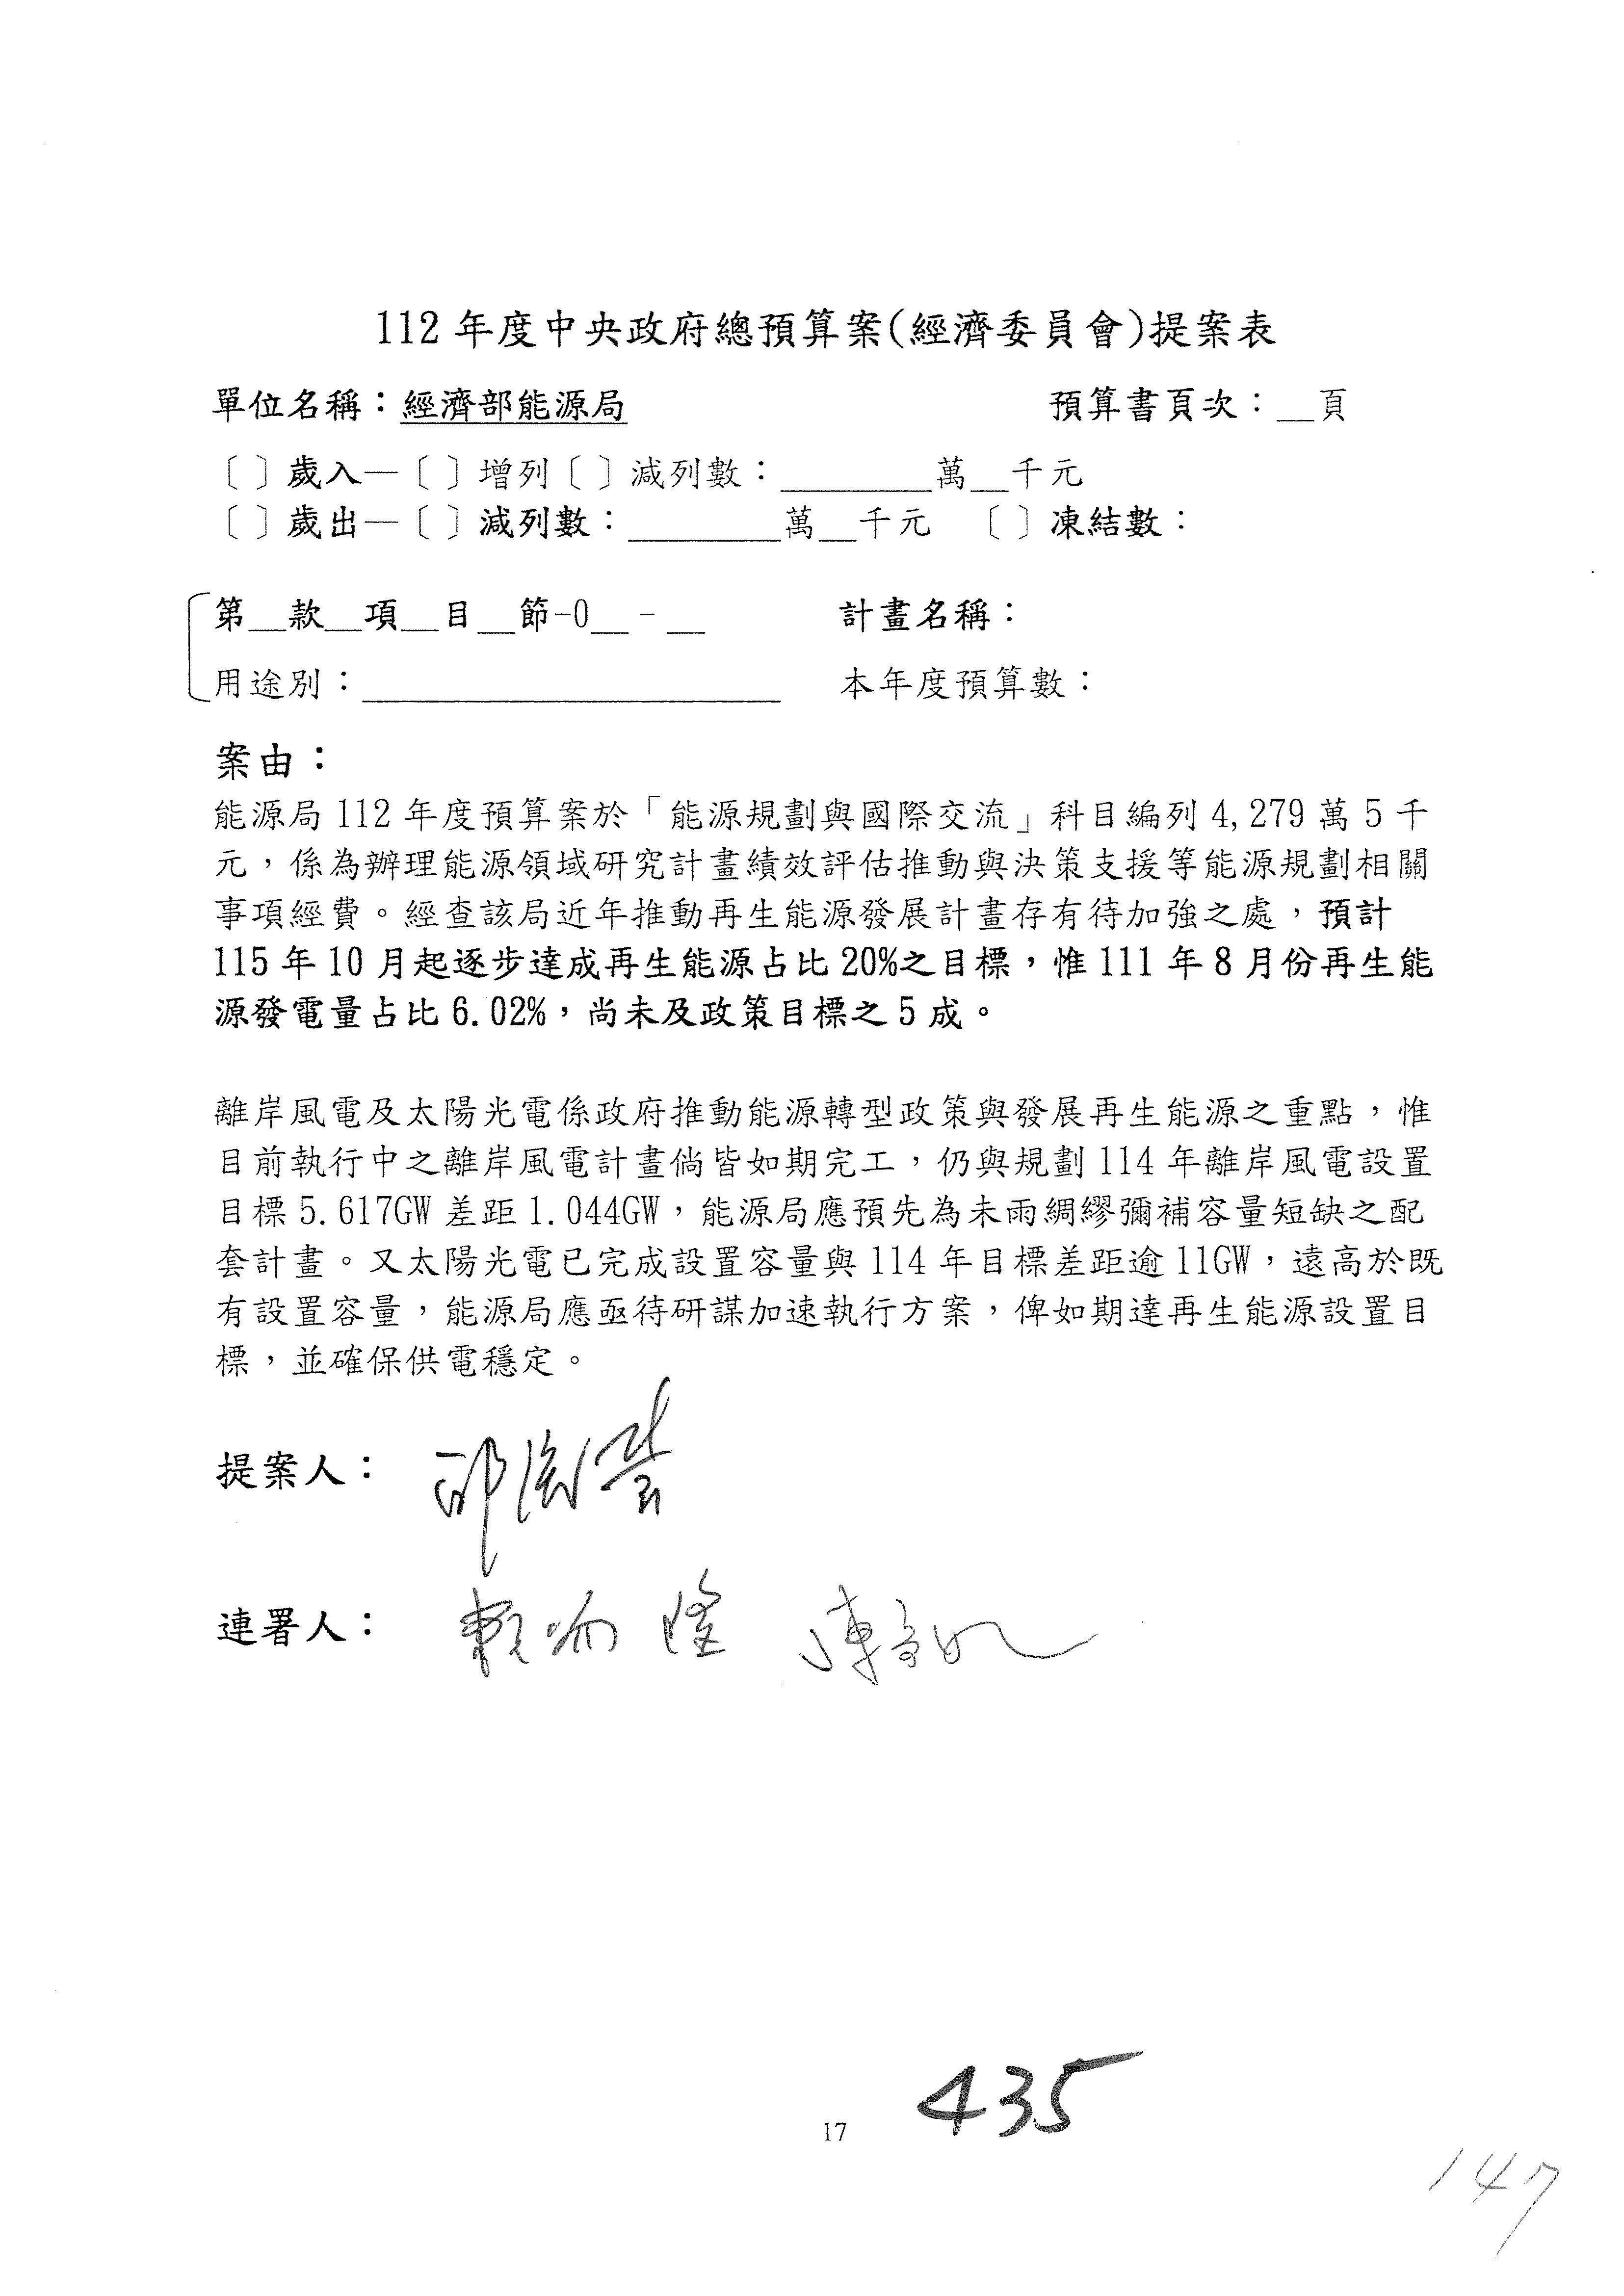 112 年度中央政府總預算案(經濟委員會)提案表
單位名稱：經濟部能源局 預算書頁次：__頁
〔 〕歲入—〔 〕增列〔 〕減列數：________萬__千元
〔 〕歲出—〔 〕減列數：________萬__千元 〔 〕凍結數：
第__款__項__目__節-0__-__ 計畫名稱：
用途別：______________________ 本年度預算數：
案由：
能源局 112 年度預算案於「能源規劃與國際交流」科目編列 4,279 萬 5 千
元，係為辦理能源領域研究計畫績效評估推動與決策支援等能源規劃相關
事項經費。經查該局近年推動再生能源發展計畫存有待加強之處，預計
115 年 10 月起逐步達成再生能源占比 20%之目標，惟 111 年 8 月份再生能
源發電量占比 6.02%，尚未及政策目標之 5 成。
離岸風電及太陽光電係政府推動能源轉型政策與發展再生能源之重點，惟
目前執行中之離岸風電計畫倘皆如期完工，仍與規劃 114 年離岸風電設置
目標 5.617GW 差距 1.044GW，能源局應預先為未雨綢繆彌補容量短缺之配
套計畫。又太陽光電已完成設置容量與 114 年目標差距逾 11GW，遠高於既
有設置容量，能源局應亟待研謀加速執行方案，俾如期達再生能源設置目
標，並確保供電穩定。
提案人：
連署人：賴瑞隆
435
17
147